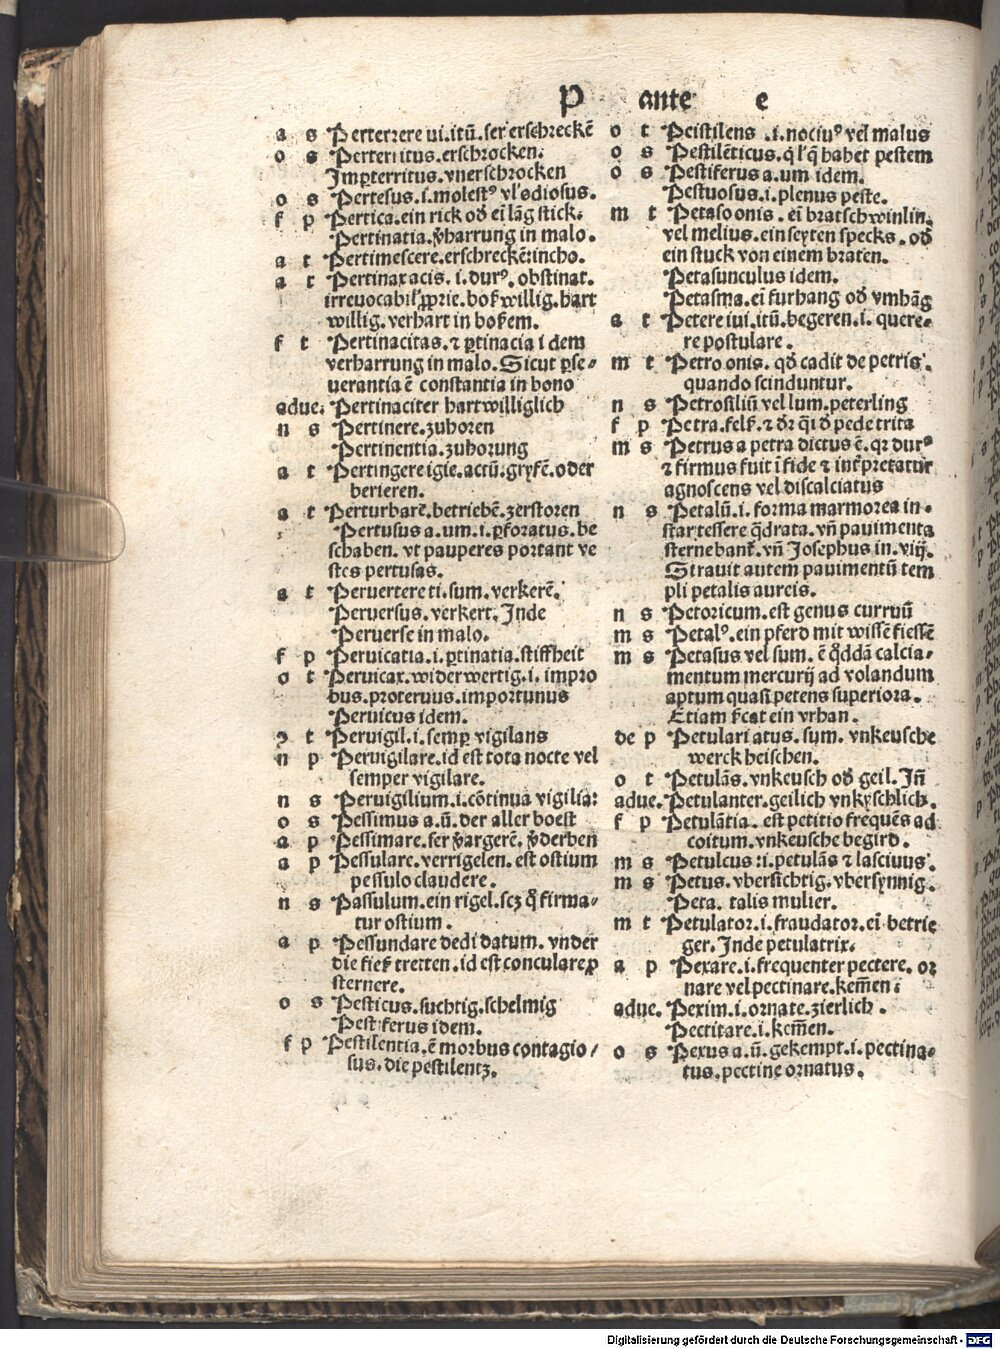 P ante e
a s Perterrere ui. itū. ser erschreckē
o s Perterritus. erschrocken.
Imperterritus. vnerschrocken
o s Pertesus. i. molestꝰ vl' odiosus.
f p Pertica. ein rick od̄ ei lāg stick.
Pertinatia. v̄harrung in malo.
a t Pertimescere. erschreckē: incho.
a t Pertinax acis. i. durꝰ. obstinat.
irreuocabil' ꝓprie. boß willig. hart
willig. verhart in boßem.
f t Pertinacitas. ⁊ ꝑtinacia idem
verharrung in malo. Sicut ꝑse⸗
uerantia ē constantia in bono
adue. Pertinaciter hartwilliglich
n s Pertinere. zuhoren
Pertinentia. zuhorung
a t Pertingere igie. actū. gryfē. oder
berieren.
a t Perturbare. betriebē. zerstoren
Pertusus a. um. i. ꝑforatus. be
schaben. vt pauperes portant ve
stes pertusas.
a t Peruertere ti. sum. verkerē.
Peruersus. verkert. Jnde
Peruerse in malo.
f p Peruicatia. i. ꝑtinatia. stiffheit
o t Peruicax. widerwertig. i. impro
bus. proteruus. importunus
Peruicus idem.
ꝯ t Peruigil. i. semꝑ vigilans
n p Peruigilare. id est tota nocte vel
semper vigilare.
n s Peruigilium. i. cōtinua vigilia:
o s Pessimus a. ū. der aller boest
a p Pessimare. ser v̄argerē. v̄derben
a p Pessulare. verrigelen. est ostium
pessulo claudere.
n s Passulum. ein rigel. scz q̄ firma⸗
tur ostium.
a p Pessundare dedi datum. vnder
die fieß tretten. id est conculcare ꝓ
sternere.
o s Pesticus. suchtig. schelmig
Pestiferus idem.
f p Pestilentia. ē morbus contagio/
sus. die pestilentz.
o t Peistilens .i. nociuꝰ vel malus
o s Pestilēticus. q̄ l' q̄ habet pestem
o s Pestiferus a. um idem.
Pestuosus. i. plenus peste.
m t Petaso onis. ei bratschwinlin.
vel melius. ein seyten specks. od̄
ein stuck von einem braten.
Petasunculus idem.
Petasma. ei furhang od̄ vmhāg
a t Petere iui. itū. begeren. i. quere⸗
re postulare.
m t Petro onis. qd̄ cadit de petris.
quando scinduntur.
n s Petrosiliū vel lum. peterling
f p Petra. felß. ⁊ d̄r q̄i d̄ pede trita
m s Petrus a petra dictus ē. qꝛ durꝰ
⁊ firmus fuit i fide ⁊ intꝑretatur
agnoscens vel discalciatus
n s Petalū. i. forma marmorea in⸗
star tessere q̄drata. vn̄ pauimenta
sternebant̄. vn̄ Josephus in. viij.
Strauit autem pauimentū tem
pli petalis aureis.
n s Petoricum. est genus curruū
m s Petalꝰ. ein pferd mit wissē fiessē
m s Petasus vel sum. ē q̄ddā calcia⸗
mentum mercurij ad volandum
aptum quasi petens superiora.
Etiam ... ein vrhan.
de p Petulari atus. sum. vnkeusche
werck heischen.
o t Petulās. vnkeusch od̄ geil. Jn̄
adue. Petulanter. geilich vnkyschlich.
f p Petulātia. est petitio frequēs ad
coitum. vnkeusche begird.
m s Petulcus: i. petulās ⁊ lasciuus.
m s Petus. vbersichtig. vbersynnig.
Peta. talis mulier.
m t Petulator. i. fraudator. ei betrie
ger. Jnde petulatrix.
a p Pexare. i. frequenter pectere. or
nare vel pectinare. kem̄en.
adue. Pexim. i. ornate. zierlich.
Pectitare. i. kem̄en.
o s Pexus a. ū. gekempt. i. pectina⸗
tus. pectine ornatus.
Digitalisierung gefördert durch die Deutsche Forschungsgemeinschaft - DFG